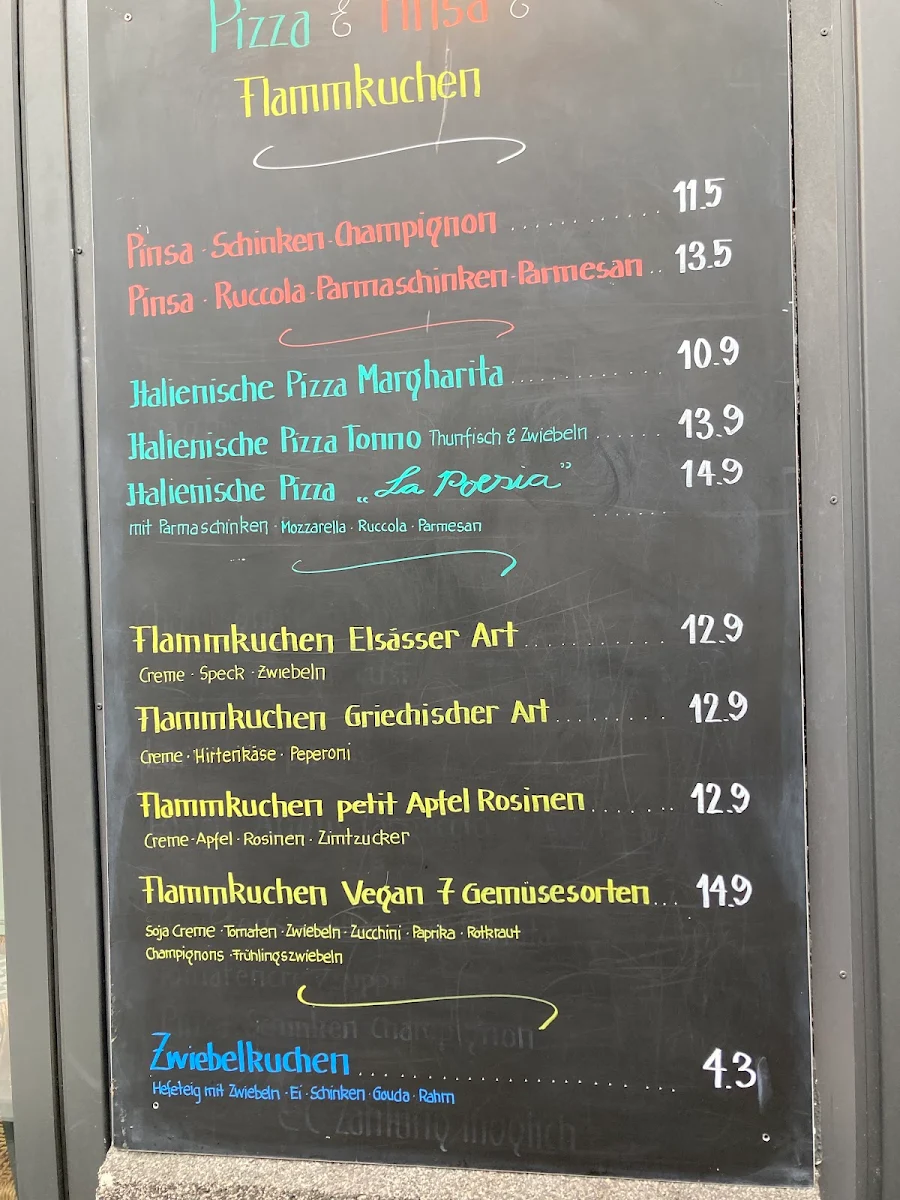 Pizza & Pinsa &
Flammkuchen
Pinsa · Schinken · Champignon .............. 11.5
Pinsa · Ruccola · Parmaschinken · Parmesan .. 13.5
Italienische Pizza Margharita .............. 10.9
Italienische Pizza Tonno Thunfisch & Zwiebeln ....... 13.9
Italienische Pizza „La Poesia” 14.9
mit Parmaschinken · Mozzarella · Ruccola · Parmesan
Flammkuchen Elsässer Art ............ 12.9
Creme · Speck · Zwiebeln
Flammkuchen Griechischer Art ......... 12.9
Creme · Hirtenkäse · Peperoni
Flammkuchen petit Apfel Rosinen ........ 12.9
Creme · Apfel · Rosinen · Zimtzucker
Flammkuchen Vegan 7 Gemüsesorten ... 14.9
Soja Creme · Tomaten · Zwiebeln · Zucchini · Paprika · Rotkraut
Champignons · Frühlingszwiebeln
Zwiebelkuchen ........................ 4.3
Hefeteig mit Zwiebeln · Ei · Schinken · Gouda · Rahm